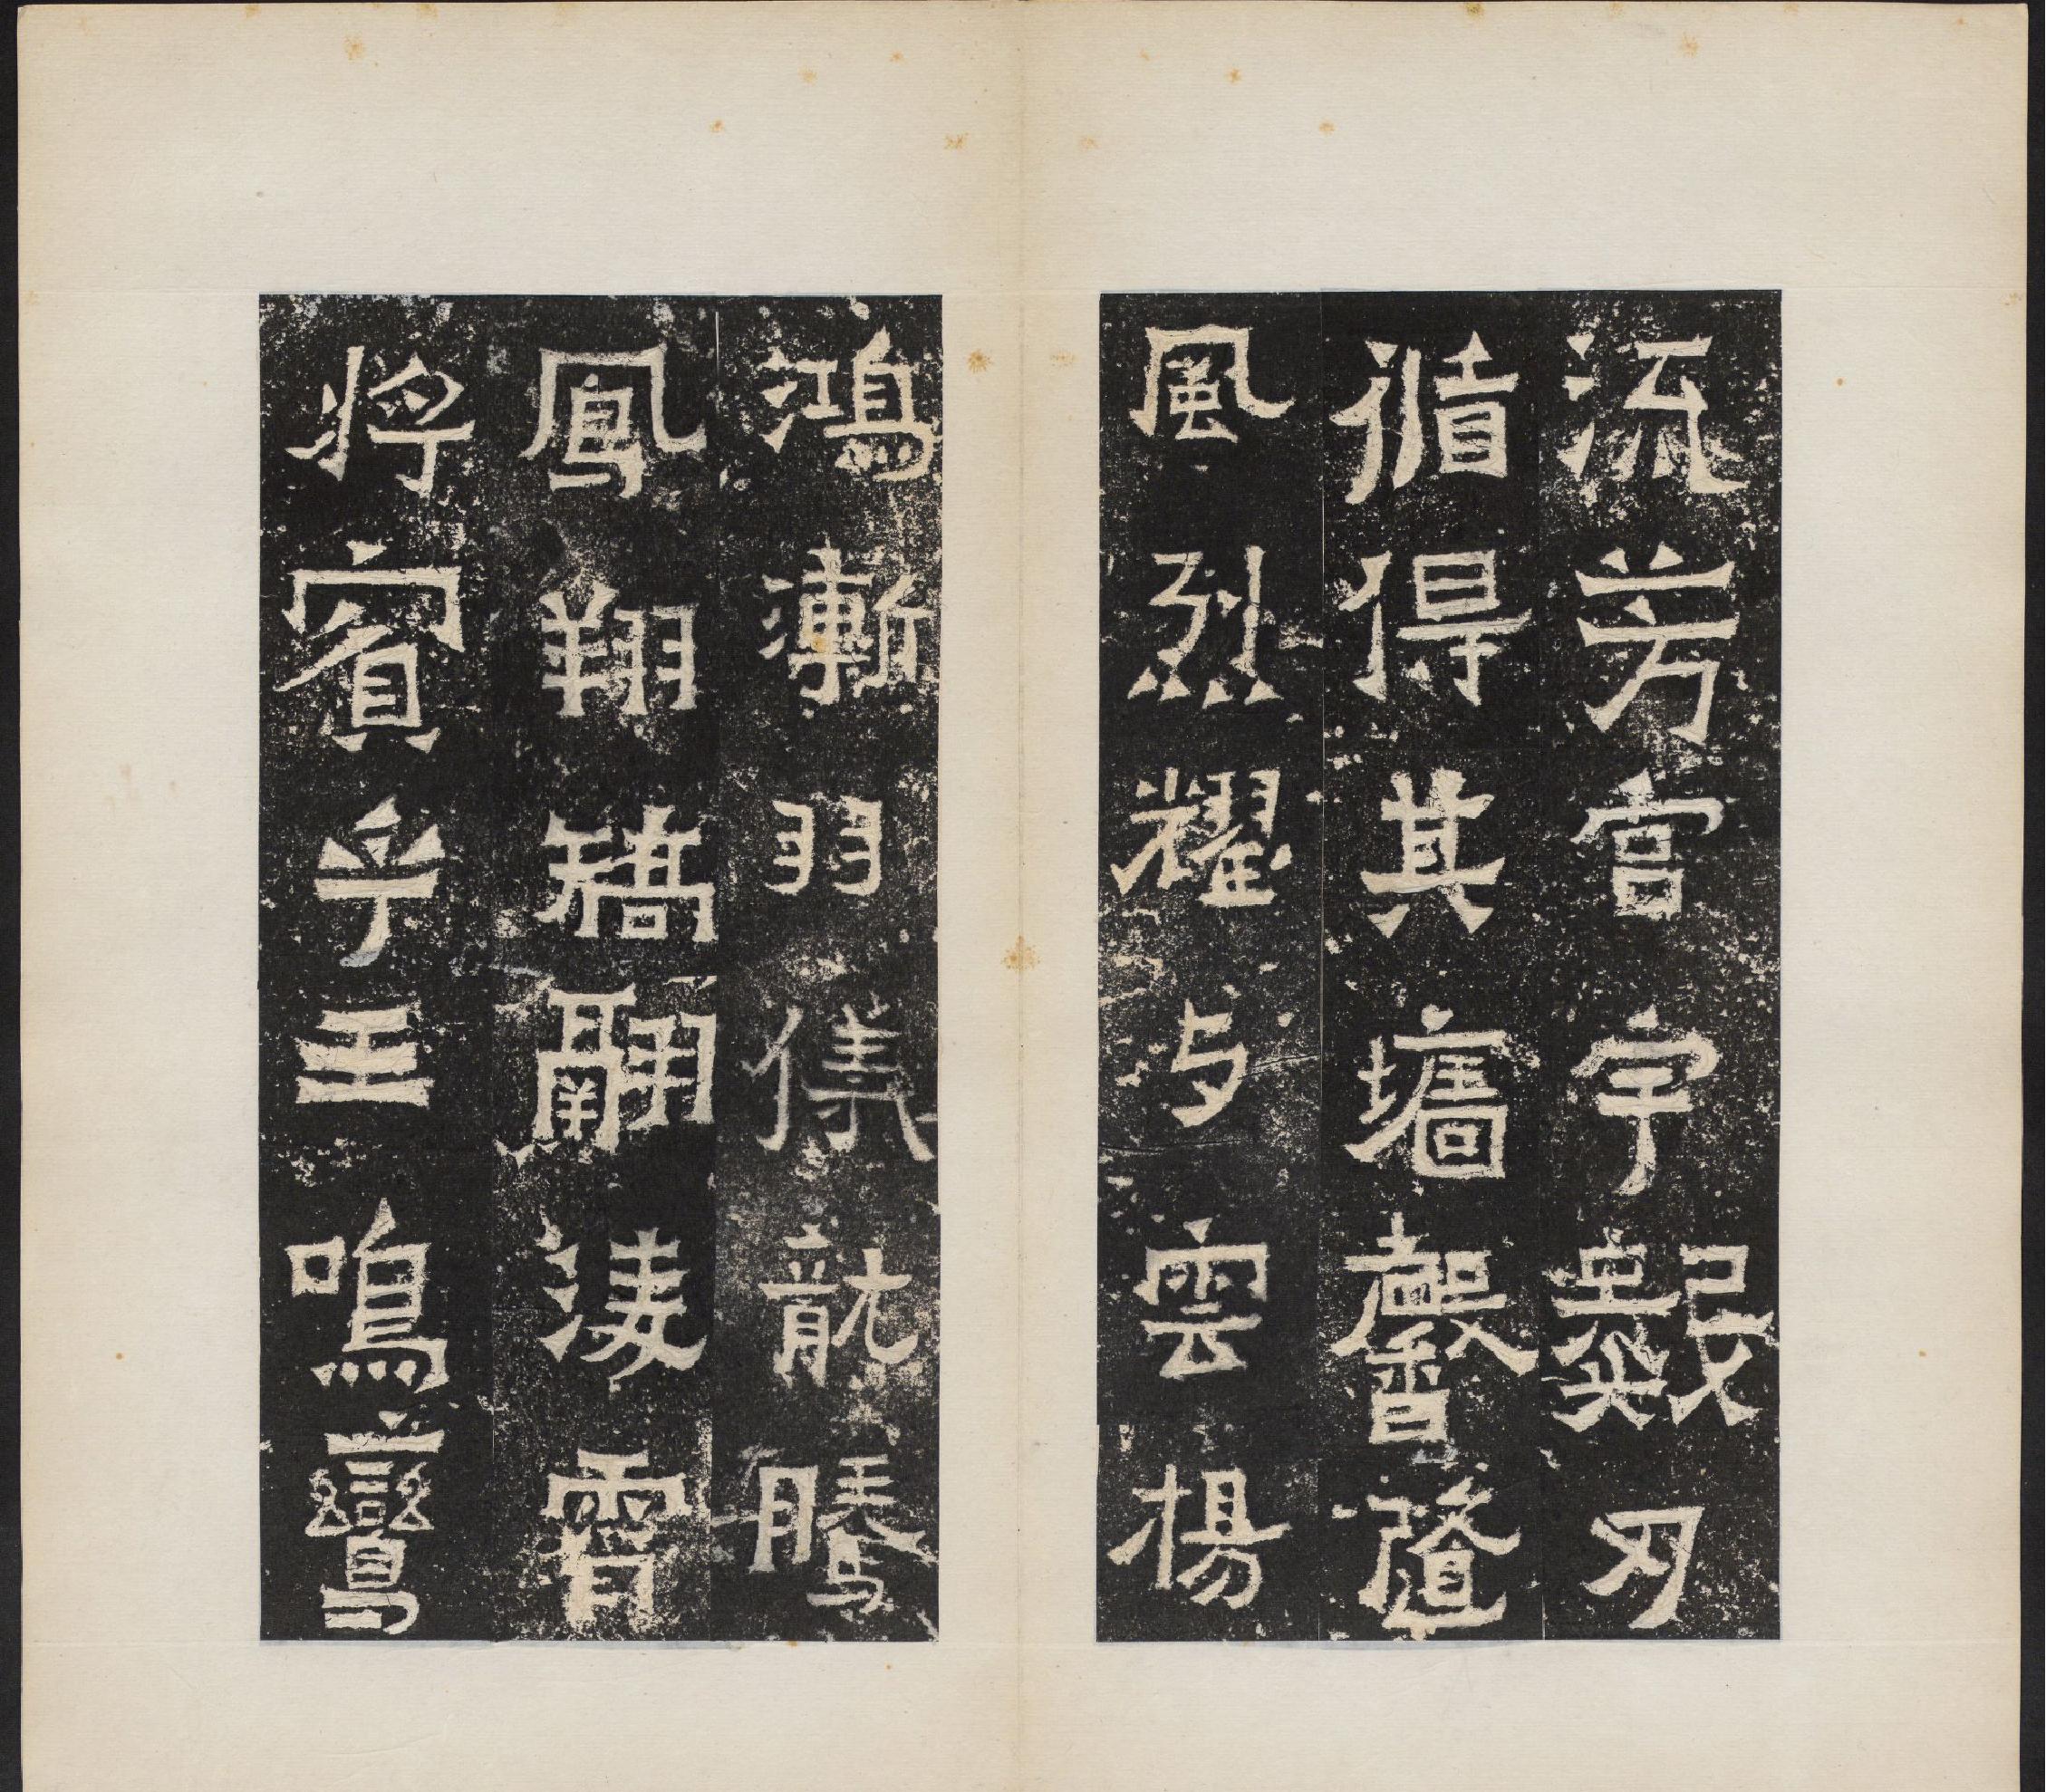 流芳宮宇數刃
循得其墻馨隨
風烈耀与雲揚
鴻漸羽儀龍騰
鳳翔矯翮淩霄
將賓乎王鳴鸞